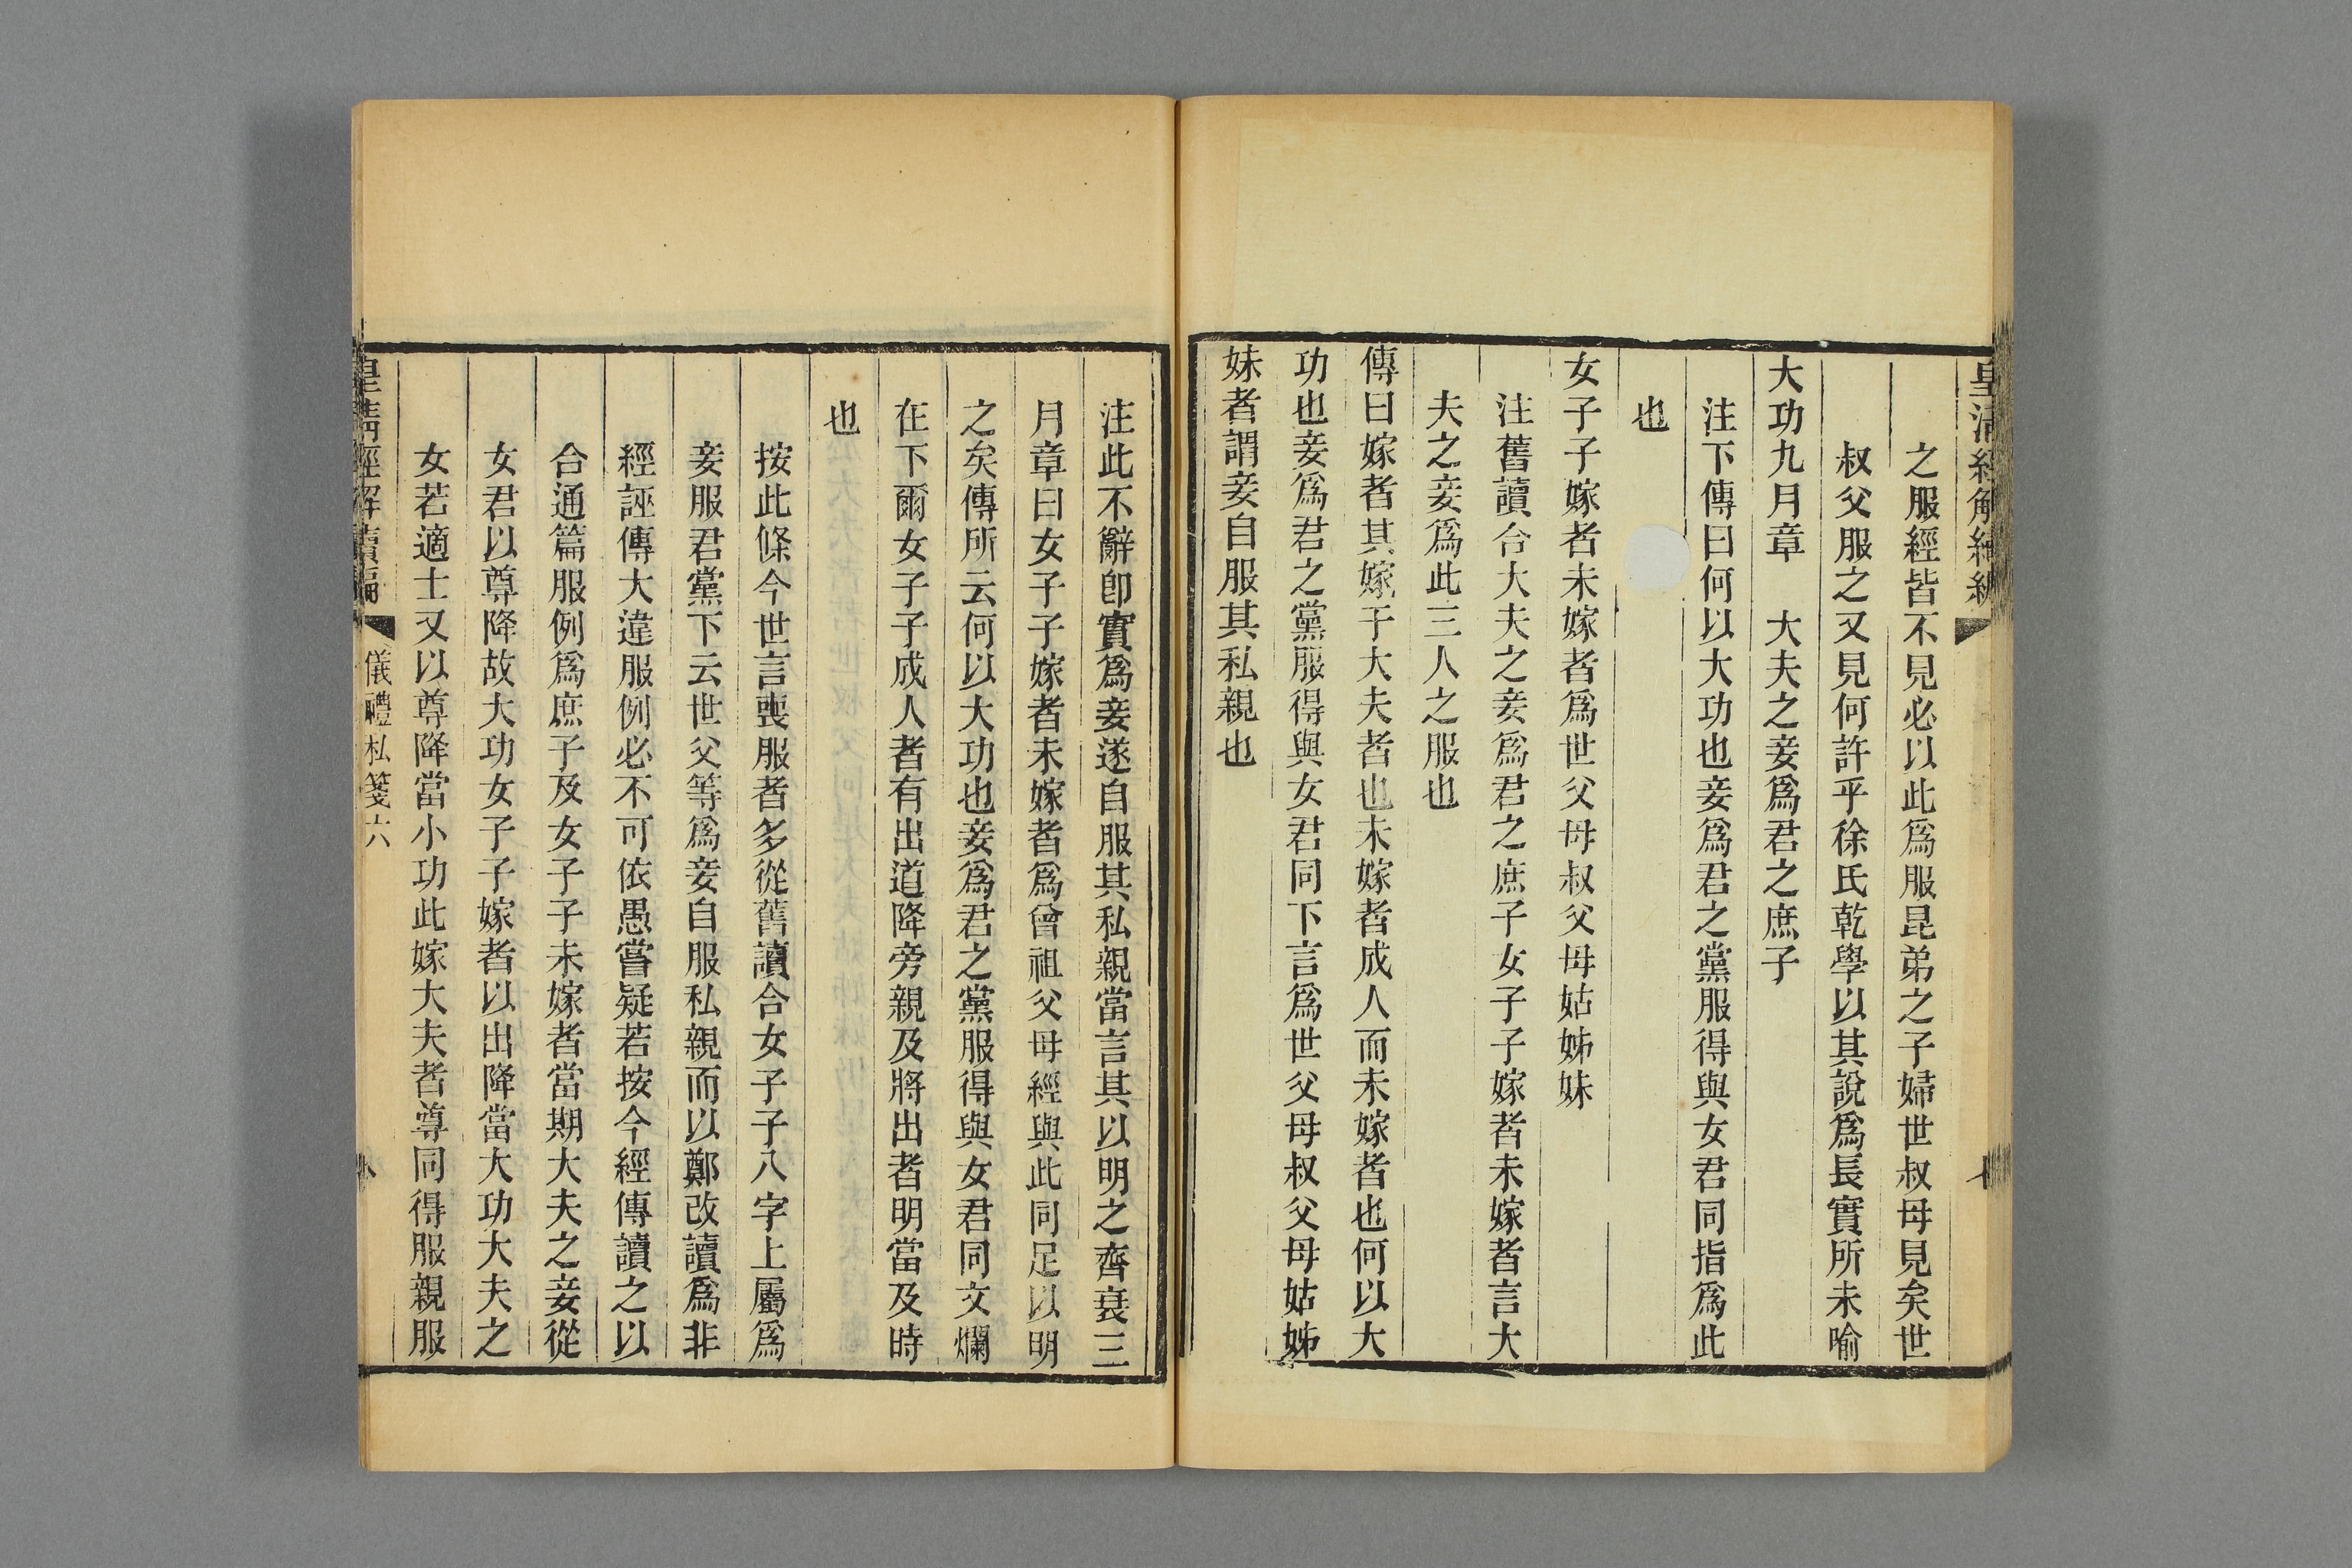 皇清經解續編
之服經皆不見必以此爲服昆弟之子婦世叔母見矣世
叔父服之又見何許乎徐氏乾學以其說爲長實所未喻
大功九月章　大夫之妾爲君之庶子
注下傳曰何以大功也妾爲君之黨服得與女君同指爲此
也
女子子嫁者未嫁者爲世父母叔父母姑姊妹
注舊讀合大夫之妾爲君之庶子女子子嫁者未嫁者言大
夫之妾爲此三人之服也
傳曰嫁者其嫁于大夫者也未嫁者成人而未嫁者也何以大
功也妾爲君之黨服得與女君同下言爲世父母叔父母姑姊
妹者謂妾自服其私親也
注此不辭卽實爲妾遂自服其私親當言其以明之齊衰三
月章曰女子子嫁者未嫁者爲曾祖父母經與此同足以明
之矣傳所云何以大功也妾爲君之黨服得與女君同文爛
在下爾女子子成人者有出道降旁親及將出者明當及時
也
按此條今世言喪服者多從舊讀合女子子八字上屬爲
妾服君黨下云世父等爲妾自服私親而以鄭改讀爲非
經誣傳大違服例必不可依愚嘗疑若按今經傳讀之以
合通篇服例爲庶子及女子子未嫁者當期大夫之妾從
女君以尊降故大功女子子嫁者以出降當大功大夫之
女若適士又以尊降當小功此嫁大夫者尊同得服親服
皇清經解續編　儀禮私箋六　八